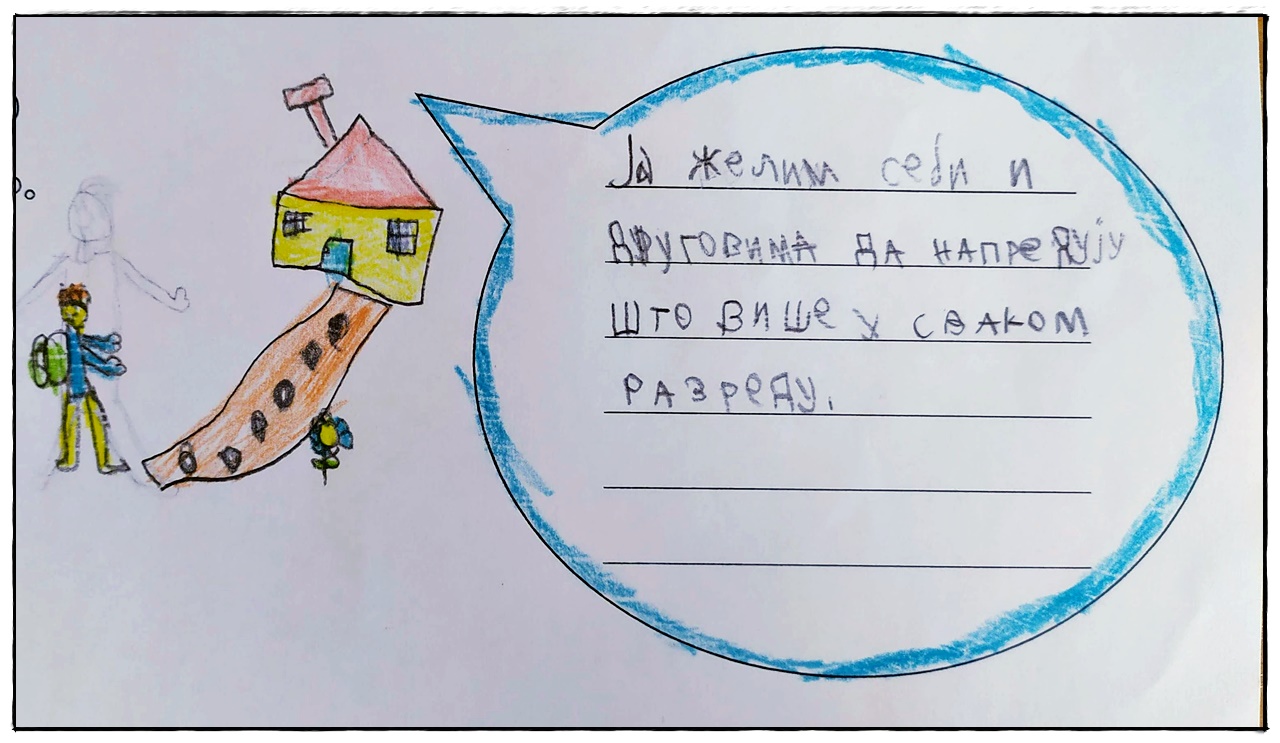 Ја желим себи и
друговима да напредују
што више у сваком
разреду.